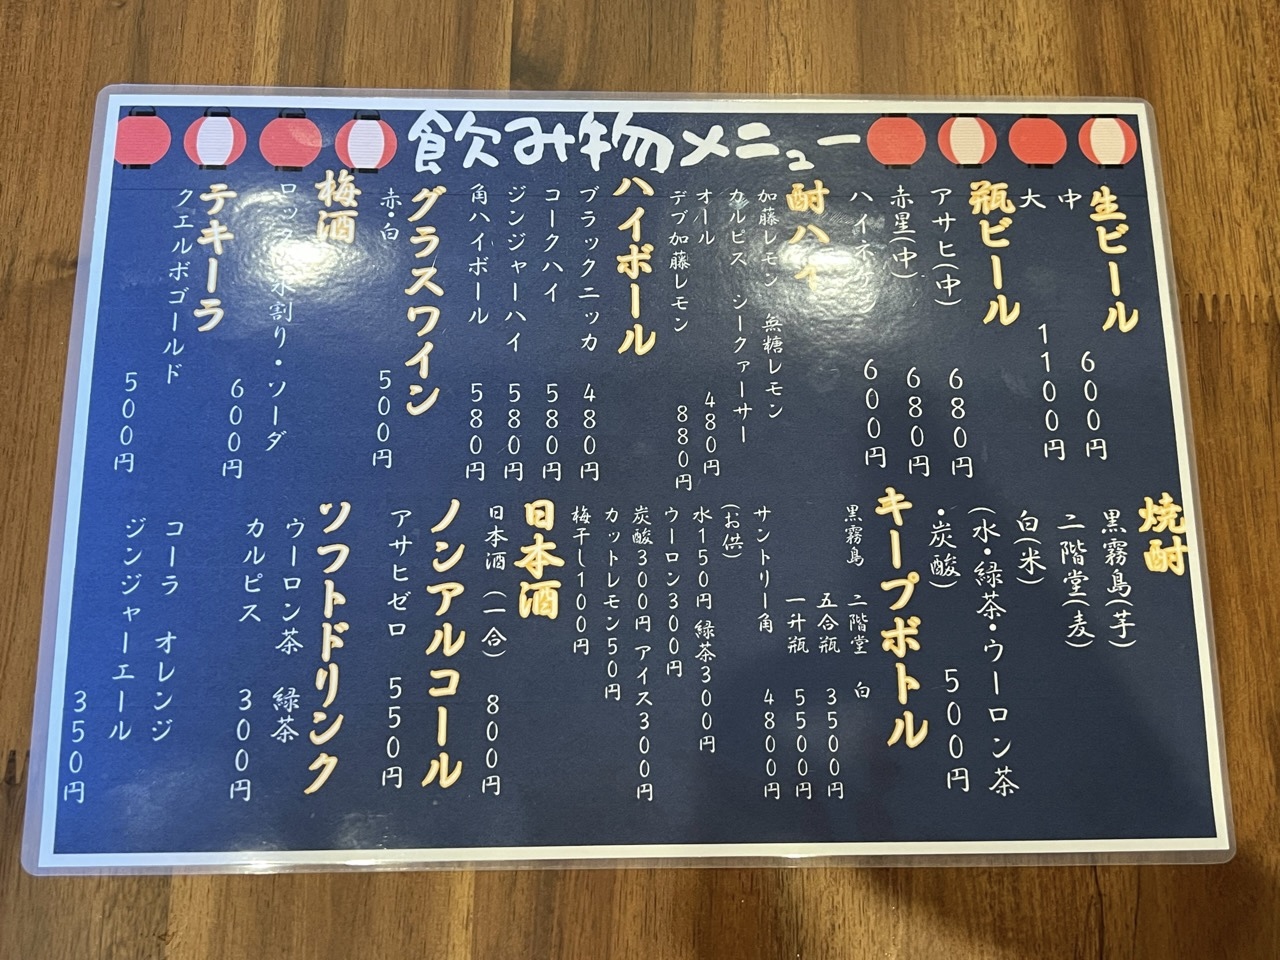 飲み物メニュー
生ビール
中 600円
大 1100円
瓶ビール
アサヒ(中) 680円
赤星(中) 680円
ハイネケン 600円
酎ハイ
加藤レモン 無糖レモン
カルピス シークァーサー
オール 480円
デブ加藤レモン 880円
ハイボール
ブラックニッカ 480円
コークハイ 580円
ジンジャーハイ 580円
角ハイボール 580円
グラスワイン
赤・白 500円
梅酒
ロック・水割り・ソーダ
600円
テキーラ
クエルボゴールド
500円
焼酎
黒霧島(芋)
二階堂(麦)
白(米)
(水・緑茶・ウーロン茶
・炭酸) 500円
キープボトル
黒霧島 二階堂 白
五合瓶 3500円
一升瓶 5500円
サントリー角 4800円
(お供)
水150円 緑茶300円
ウーロン300円
炭酸300円 アイス300円
カットレモン50円
梅干し100円
日本酒
日本酒(一合) 800円
ノンアルコール
アサヒゼロ 550円
ソフトドリンク
ウーロン茶 緑茶
カルピス 300円
コーラ オレンジ
ジンジャーエール
350円